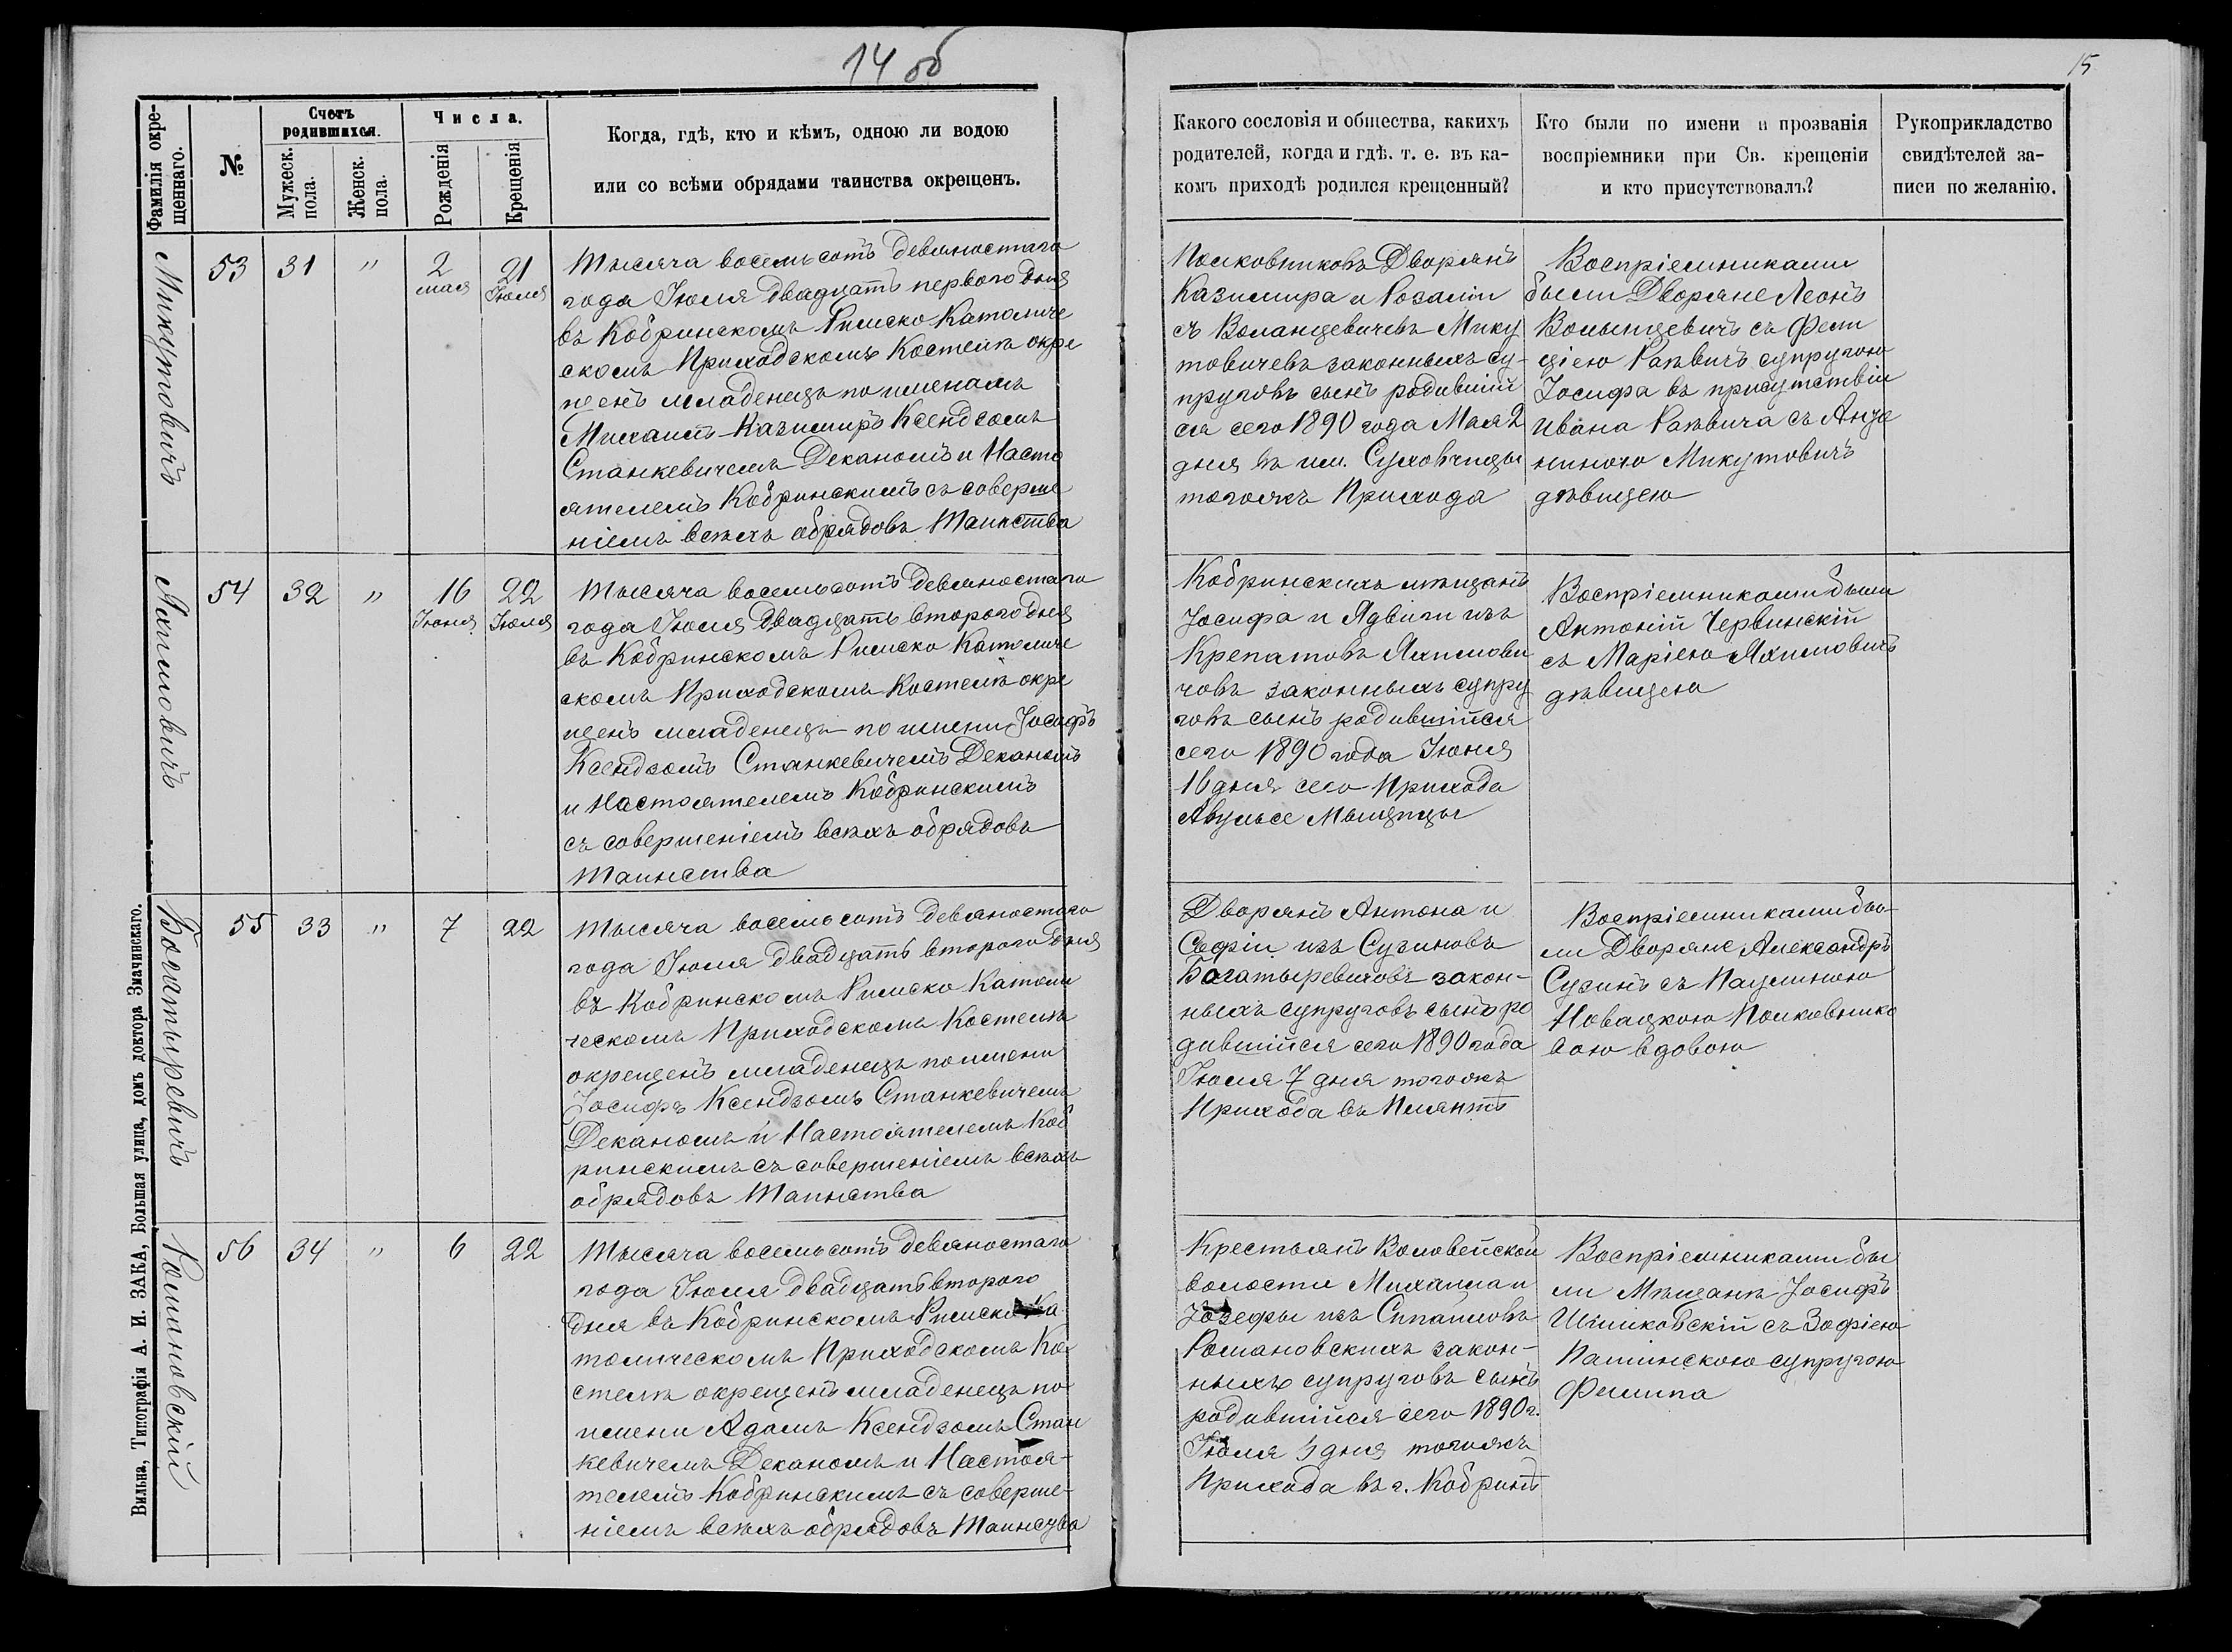 14 об
15
Фамилія окре-
щеннаго.
№
Счетъ
родившихся.
Мужеск.
пола.
Женск.
пола.
Числа.
Рожденія
Крещенія
Когда, гдѣ, кто и кѣмъ, одною ли водою
или со всѣми обрядами таинства окрещенъ.
Какого сословія и общества, какихъ
родителей, когда и гдѣ. т. е. въ ка-
комъ приходѣ родился крещенный?
Кто были по имени и прозванія
воспріемники при Св. крещеніи
и кто присутствовалъ?
Рукоприкладство
свидѣтелей за-
писи по желанію.
Микутовичъ
53
31
"
2
мая
21
Іюля
Тысяча восемьсотъ девяностаго
года Іюля двадцать перваго дня
въ Кобринскомъ Римско Католиче
скомъ Приходскомъ Костелѣ окре
щенъ младенецъ по именамъ
Михаилъ-Казимиръ Ксендзомъ
Станкевичемъ Деканомъ и Насто
ятелемъ Кобринскимъ съ соверше
ніемъ всѣхъ обрядовъ Таинства
Полковниковъ Дворянъ
Казимира и Розаліи
съ Воланцевичевъ Мику
товичевъ законныхъ су-
пруговъ сынъ родившій
ся сего 1890 года Мая 2
дня въ им. Суховчицы
тогожъ Прихода
Воспріемниками
были Дворяне Леонъ
Волынцевичъ съ Фели
ціею Раѣвичъ супругою
Іосифа въ присутствіи
Ивана Раѣвича съ Анде
линою Микутовичъ
дѣвицею
Яхимовичъ
54
32
"
16
Іюня
22
Іюля
Тысяча восемьсотъ девяностаго
года Іюля двадцать второго дня
въ Кобринскомъ Римско Католиче
скомъ Приходскомъ Костелѣ окре
щенъ младенецъ по имени Іосифъ
Ксендзомъ Станкевичемъ Деканомъ
и Настоятелемъ Кобринскимъ
съ совершеніемъ всѣхъ обрядовъ
Таинства
Кобринскихъ мѣщанъ
Іосифа и Ядвиги изъ
Крепатовъ Яхимови
човъ законныхъ супру
говъ сынъ родившійся
сего 1890 года Іюня
16 дня сего Прихода
Воспріемниками были
Антоній Червинскій
съ Маріею Яхимовичъ
дѣвицею
Богатыревичъ
55
33
"
7
22
Тысяча восемьсотъ девяностаго
года Іюля двадцать второго дня
въ Кобринскомъ Римско Католи
ческомъ Приходскомъ Костелѣ
окрещенъ младенецъ по имени
Іосифъ Ксендзомъ Станкевичемъ
Деканомъ и Настоятелемъ Коб
ринскимъ съ совершеніемъ всѣхъ
обрядовъ Таинства
Дворянъ Антона и
Софіи изъ Сузиновъ
Богатыревичовъ закон-
ныхъ супруговъ сынъ ро
дившійся сего 1890 года
Іюля 7 дня тогожъ
Прихода въ Плянтѣ
Воспріемниками бы-
ли Дворяне Александръ
Сузинъ съ Паулиною
Новацкою Полковнико
вою вдовою
Романовскій
56
34
"
6
22
Тысяча восемьсотъ девяностаго
года Іюля двадцать второго
дня въ Кобринскомъ Римско Ка
толическомъ Приходскомъ Ко
стелѣ окрещенъ младенецъ по
имени Адамъ Ксендзомъ Стан
кевичемъ Деканомъ и Настоя-
телемъ Кобринскимъ съ соверше-
ніемъ всѣхъ обрядовъ Таинства
Крестьянъ Воловейской
волости Михаила и
Юзефы изъ
Романовскихъ закон-
ныхъ супруговъ сынъ
родившійся сего 1890 г.
Іюля дня тогожъ
Прихода въ г. Кобринѣ
Воспріемниками бы
ли Мѣщанѣ Іосифъ
Шимковскій съ Зофіею
Пашинскою супругою
Филипа
Вильна, Типографія А. И. ЗАКА, Большая улица, домъ доктора Змачинскаго.